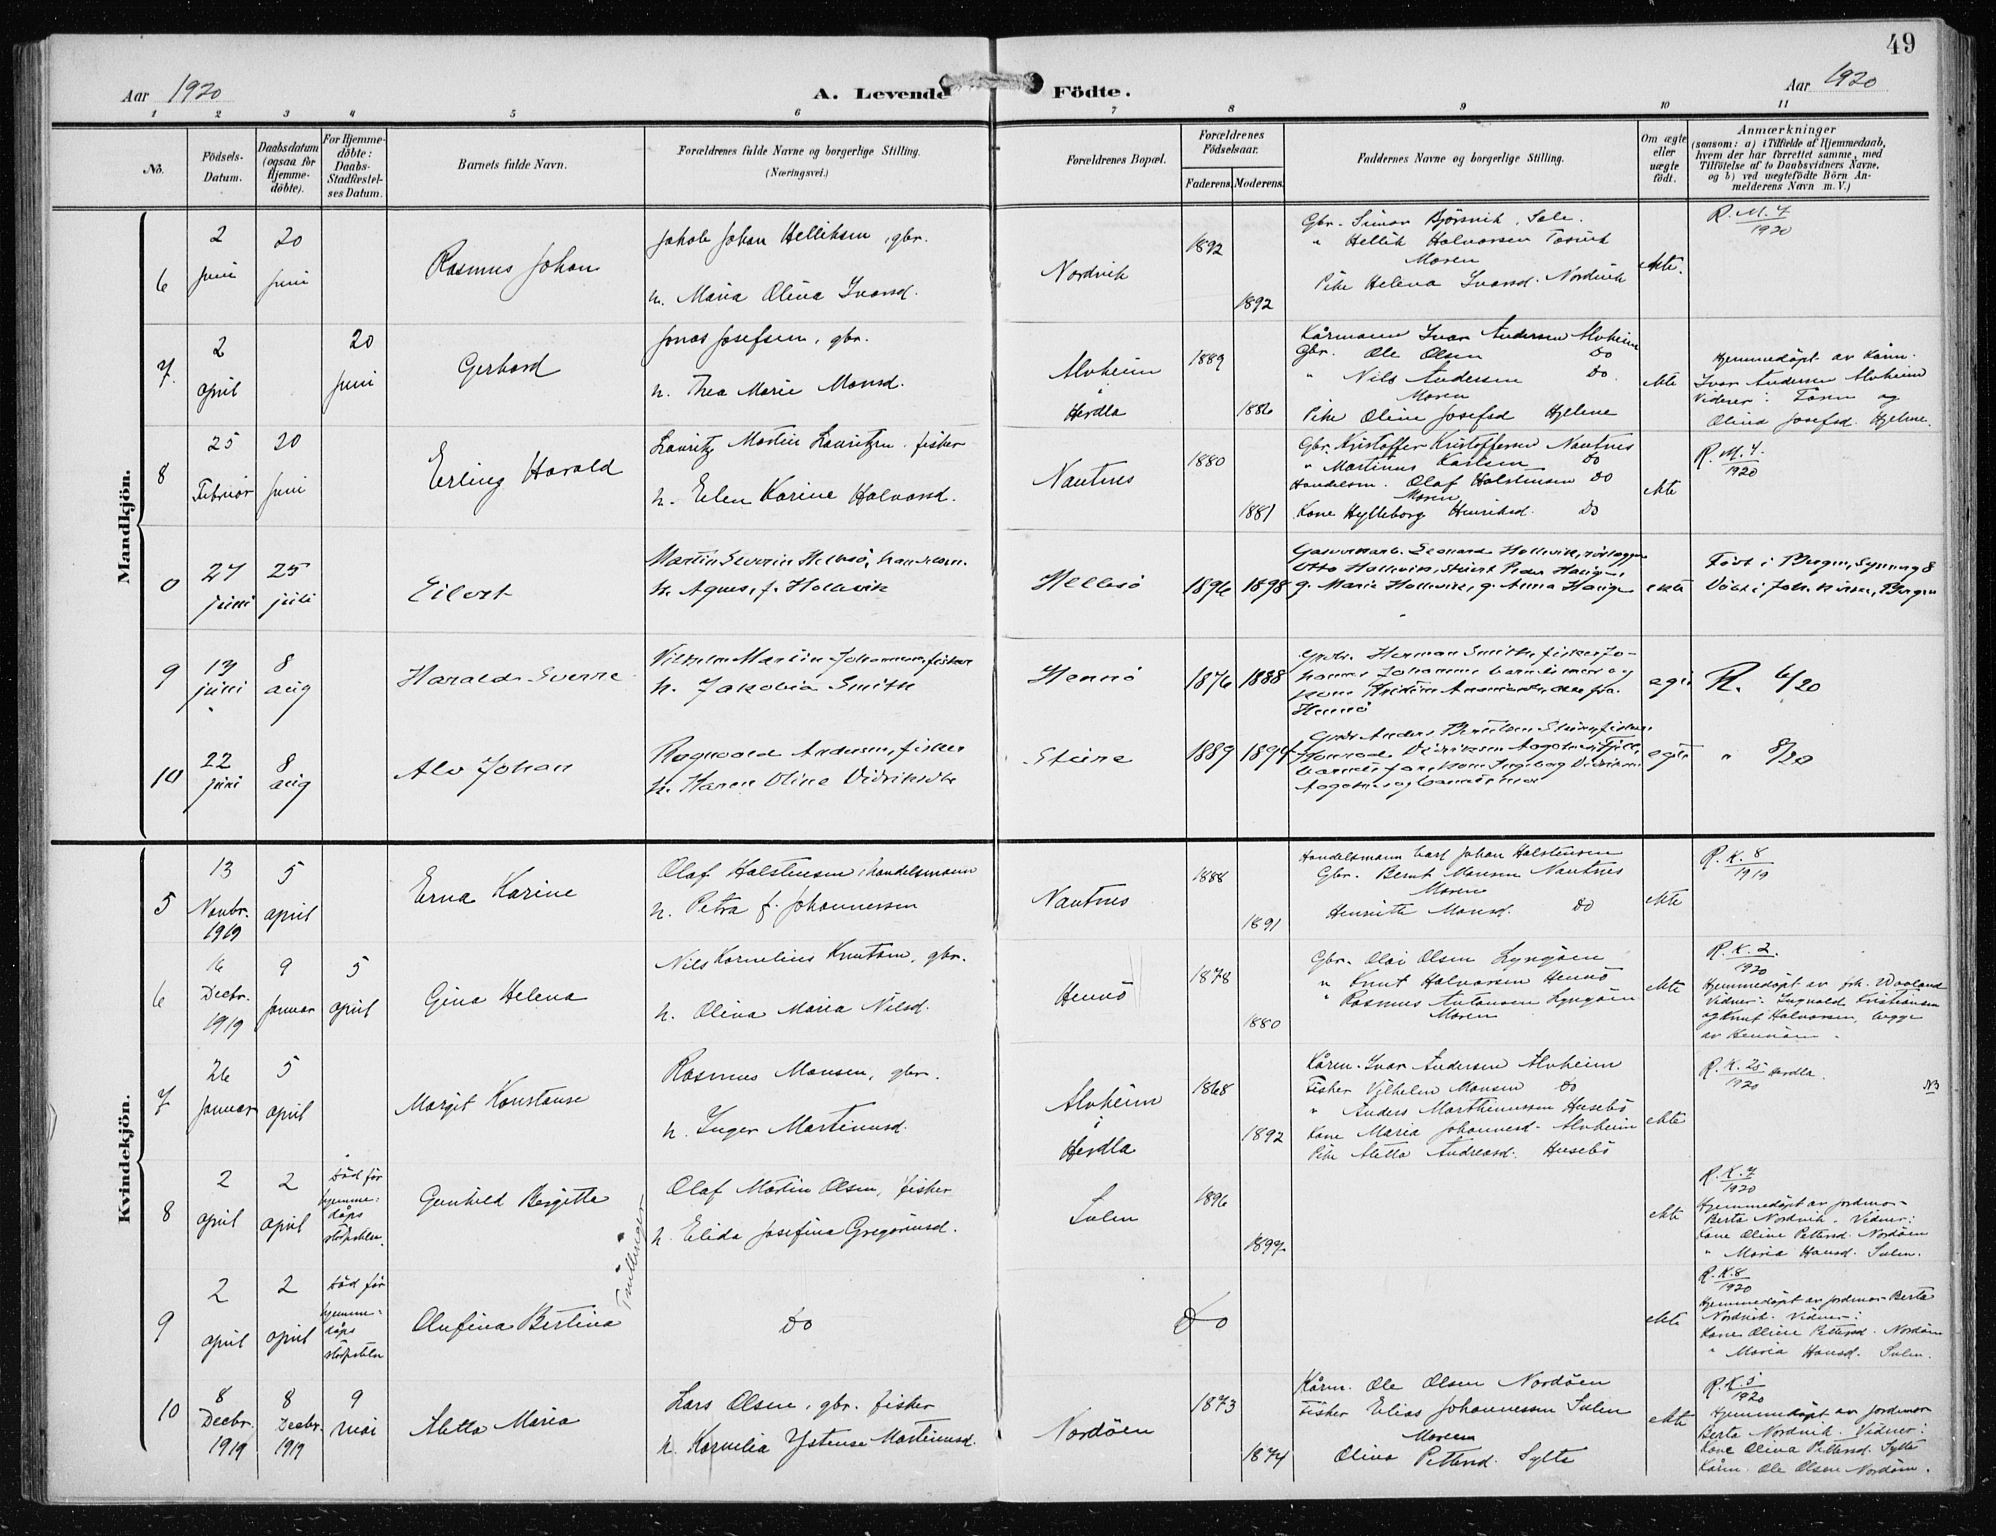 49
Aar 1920
A. Levende Födte.
Aar 1920
1 2 3 4 5 6 7 8 9 10 11
No.
Födsels-Datum.
Daabsdatum (ogsaa for Hjemme-döbte).
For Hjemme-döbte: Daabs-Stadfæstel-ses Datum.
Barnets fulde Navn.
Forældrenes fulde Navne og borgerlige Stilling.
(Næringsvei.)
Forældrenes Bopæl.
Forældrenes Födselsaar.
Faderens. Moderens.
Faddernes Navne og borgerlige Stilling.
Om ægte eller uægte födt.
Anmærkninger
(saasom: a) i Tilfælde af Hjemmedaab,
hvem der har forrettet samme, med
Tilföielse af to Daabsvidners Navne,
og b) ved uegtefödte Börn An-
melderens Navn m. V.)
Mandkjön.
6
2 juni
20 juni
Rasmus Johan
Jakob Johan Helliksen, gbr.
h. Maria Olina Ivarsd.
Nordvik
1892
1892
Gbr. Simon Bjørsvik, Sule.
" Hellik Halvorsen Tosvik
Moren
Pike Helena Ivarsd. Nordvik
ekte.
R. M. 7/1920
7.
2 april
20 juni
Gerhard
Jonas Josefsen, gbr.
h. Thea Marie Monsd.
Alvheim i Herdla
1889
1886
Kårmann Ivar Andersen Alvheim
Gbr. Ole Olsen Do
" Nils Andersen Do
Moren
Pike Olina Josefsd Hjelme
ekte
Hjemmedøpt av Kårm.
Ivar Andersen Alvheim
Vidner: Faren og
Olina Josefsd. Hjelme.
8
25 Februar
20 juni
Erling Harald
Lauritz Martin Lauritzen, fisker
h. Elen Karine Halvorsd.
Nautnes
1880
1881
Gbr. Kristoffer Kristoffersen Nautnes
" Martinus Karlsen Do
Handelsm. Olaf Halstensen Do
Moren
Kone Hylleborg Henriksd. Do
ekte
R. M. 4./1920
0
27 juni
25 juli
Eilert
Martin Severin Hellesö, handelsm.
h. Agnes, f. Hollevik
Hellesö
1896 1898
g. Marie Hollevik, g. Anna Hauge
ekte
Født i Bergen,
Döbt i Joh. kirken, Bergen
9
13 juni
8 aug
Harald Sverre
Vilhelm Martin Johannesen, fisker
h. Jakobia Smith
Hennö
1876 1888
Herman Smith, fisker Jo-
Hennö
egte
R. 6/20
10
22 juni
8 aug
Alv Johan
Ragnvald Andersen, fisker
h. Karen Oline Didriksdtr
Sture
1889 1894
egte
" 8/20
Kvindekjön.
5
13 Novbr. 1919
5 april
Erna Karine
Olaf Halstensen, handelsmann
h. Petra f. Johannessen
Nautnes
1888
1891
Handelsmann Carl Johan Halstensen
Gbr. Bernt Monsen Nautnes
Moren
Henritte Monsd. Do
ekte
R. K. 8/1919
6
16 Decbr. 1919
9 Januar
5 april
Gina Helena
Nils Kornelius Knutsen, gbr.
h. Olina Maria Nilsd.
Hennö
1878
1880
Gbr. Olai Olsen Lyngöen
" Knut Halvorsen Hennö
" Rasmus Antonsen Lyngöen
Moren
ekte
R. K. 2./1920
Hjemmedøpt av frk. Waaland
Vidner: Ingvald Kristiansen
og Knut Halvorsen, begge
av Hennöen.
7
26 Januar
5 april
Margit Konstanse
Rasmus Monsen, gbr.
h. Inger Martinusd.
Alvheim i Herdla
1868
1892
Kårm. Ivar Andersen Alvheim
Fisker Vilhelm Monsen Do
" Anders Marthinussen Husebö
Kone Maria Johannesd. Alvheim
Pike Aletta Andreasd. Husebö
ekte
R. K. 25/1920 Herdla.
N3
8
2 april
2 april
död før hjemme-dåps stadfestelsen.
Gunhild Bergitte
Olaf Martin Olsen, fisker
h. Elida Josefina Gregoriusd.
Tvillinger
Sulen
1896
1899
ekte
R. K. 7/1920
Hjemmedøpt av jordmor
Berta Nordvik. Vidner:
Kone Oline Pettersd. Nordöen
" Maria Hansd. Sulen.
9
2 april
2 april
död før hjemme-dåps
Olufina Bertina
Do
Do
ekte
R. K. 8/1920
Hjemmedøpt av jordmor Berta
Nordvik. Vidner:
Kone Oline Pettersd. Nordöen
" Maria Hansd. Sulen.
10
8 Decbr. 1919
8 Decbr. 1919
9 mai
Aletta Maria
Lars Olsen, gbr. fisker
h. Kornelia Ystense Martinusd.
Nordöen
1873
1874
Kårm. Ole Olsen Nordöen
Fisker Elias Johannessen Sulen
Moren
Olina Pettersd. Sylta
ekte
R. K. 5/1920
Hjemmedøpt av jordmor
Berta Nordvik. Vidner:
Kone Olina Pettersd. Sylta
Kårm. Ole Olsen Nordöen.